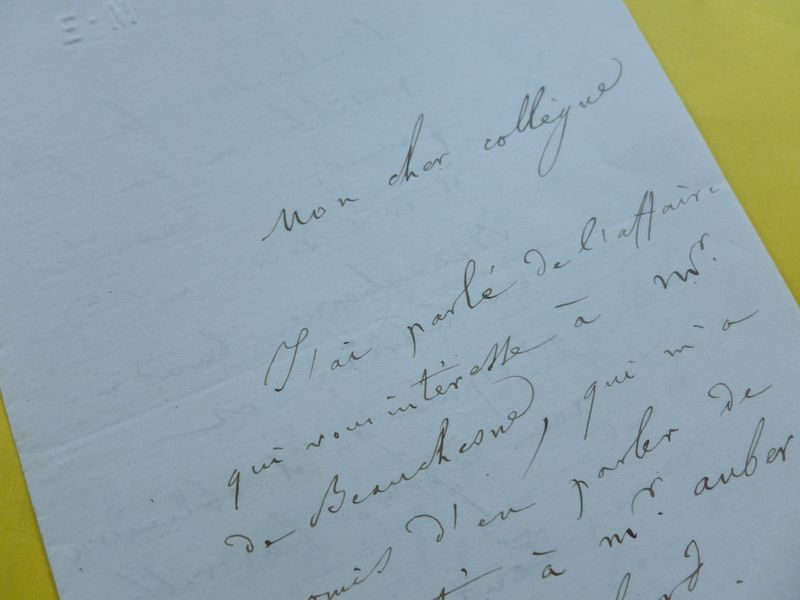 E-M
Mon cher collègue
J'ai parlé de l'affaire
qui vous intéresse à Mr.
de Beauchesne, qui m'a
d'en parler de
à Mr. auber